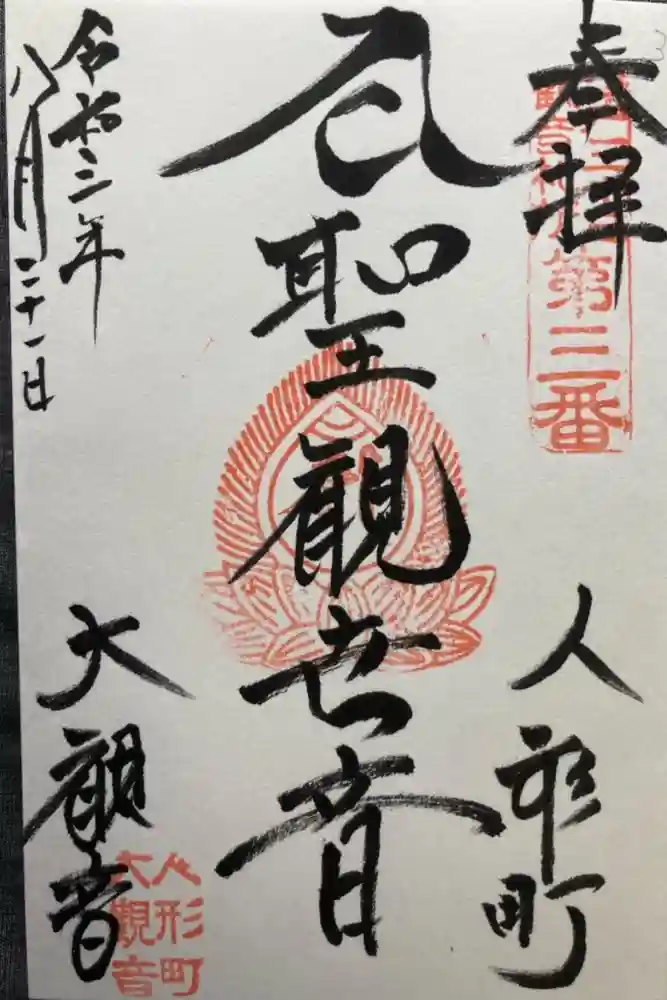 奉拝
第三番
人形町
聖觀世音
令和三年
八月二十一日
大観音
人形町
大觀音